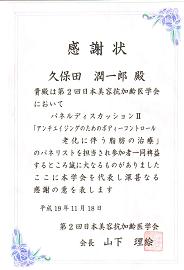 感謝状
久保田 潤一郎 殿
貴殿は第2回日本美容抗加齢医学会
において
パネルディスカッションⅡ
「アンチエイジングのためのボディーコントロール
老化に伴う脂肪の治療」
のパネリストを担当され参加者一同裨益
するところ誠に大なるものがありました
ここに本学会を代表し深甚なる
感謝の意を表します
平成19年11月18日
第2回日本美容抗加齢医学会
会長 山下 理絵